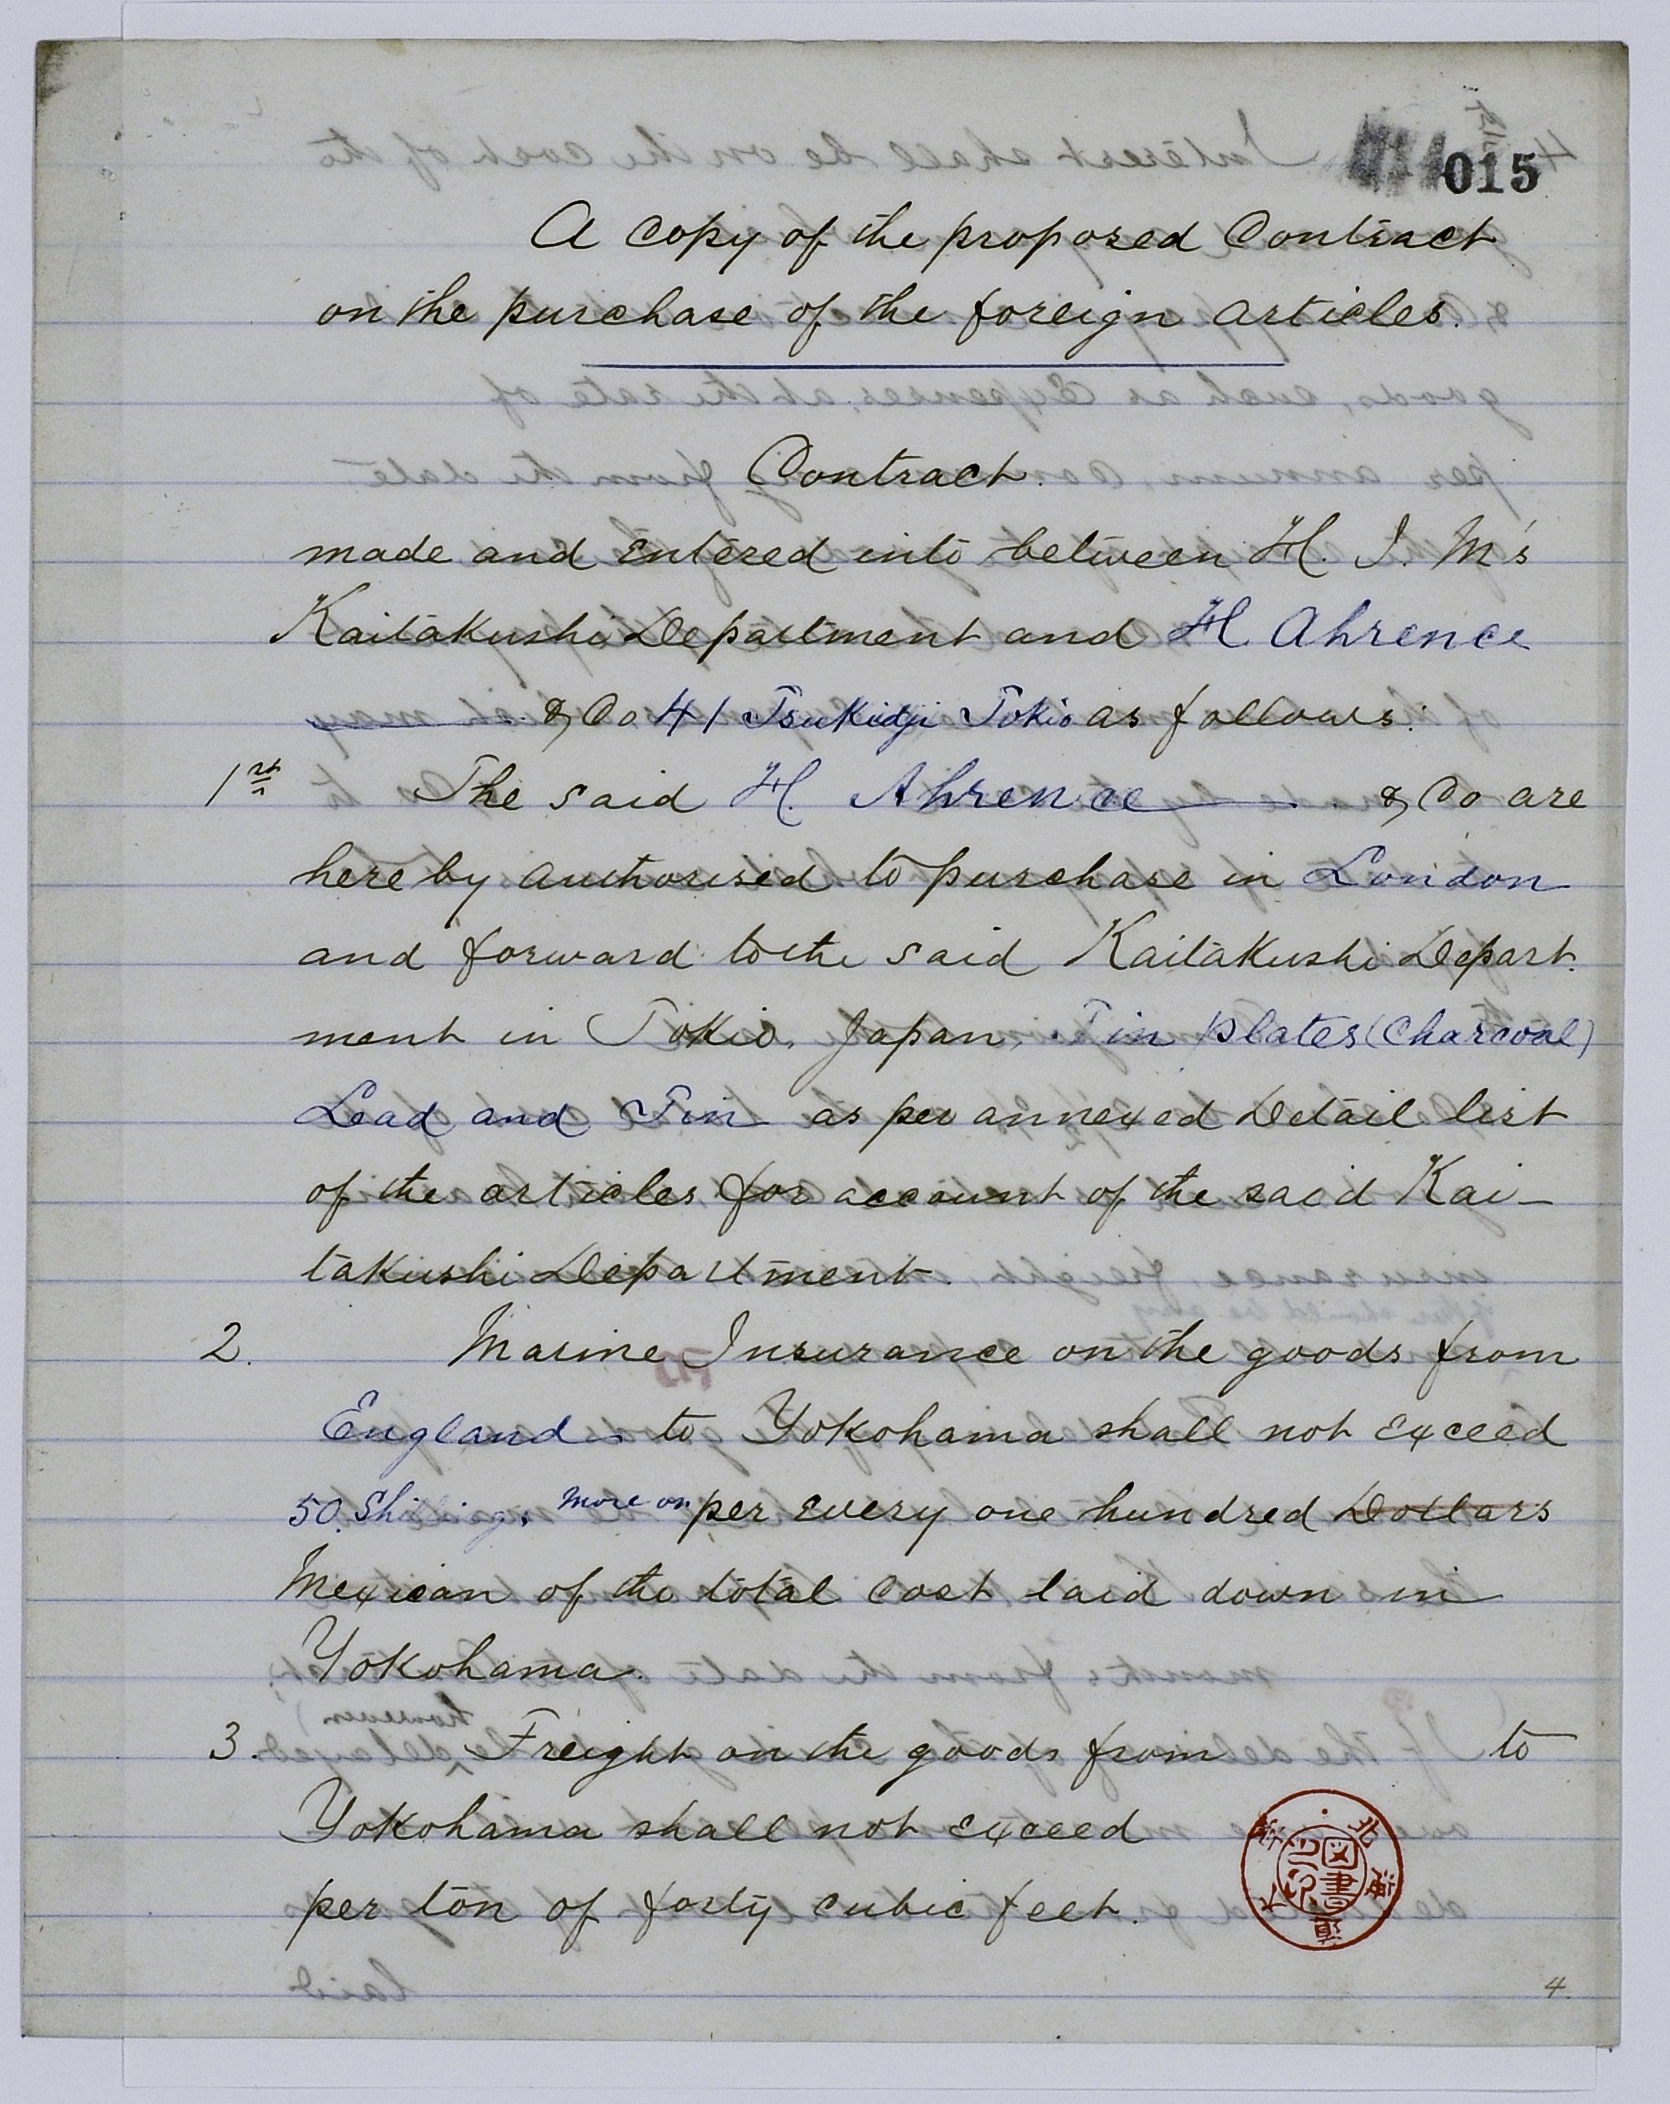 015
A copy of the proposed Contract
on the purchase of the foreign articles.
Contract.
made and entered into between H. I. M's
Kaitakushi Department and H. Ahrence
& Co 41 Tsukidji Tokio as follows:
1st The said H. Ahrence & Co are
here by authorised to purchase in London
and forward to the said Kaitakushi Depart.
ment in Tokio, Japan, Tin plates (Charcoal)
Lead and Tin as per annexed Detail list
of the articles for account of the said Kai-
takushi Department.
2. Marine Insurance on the goods from
England to Yokohama shall not exceed
50 Shillings more on per every one hundred Dollars
Mexican of the total cost laid down in
Yokohama.
3. Freight on the goods from to
Yokohama shall not exceed
per ton of forty cubic feet.
圖書
4.